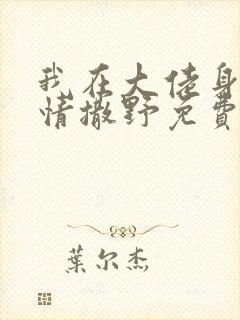 我在大佬身
情撒野免費
葉尔杰